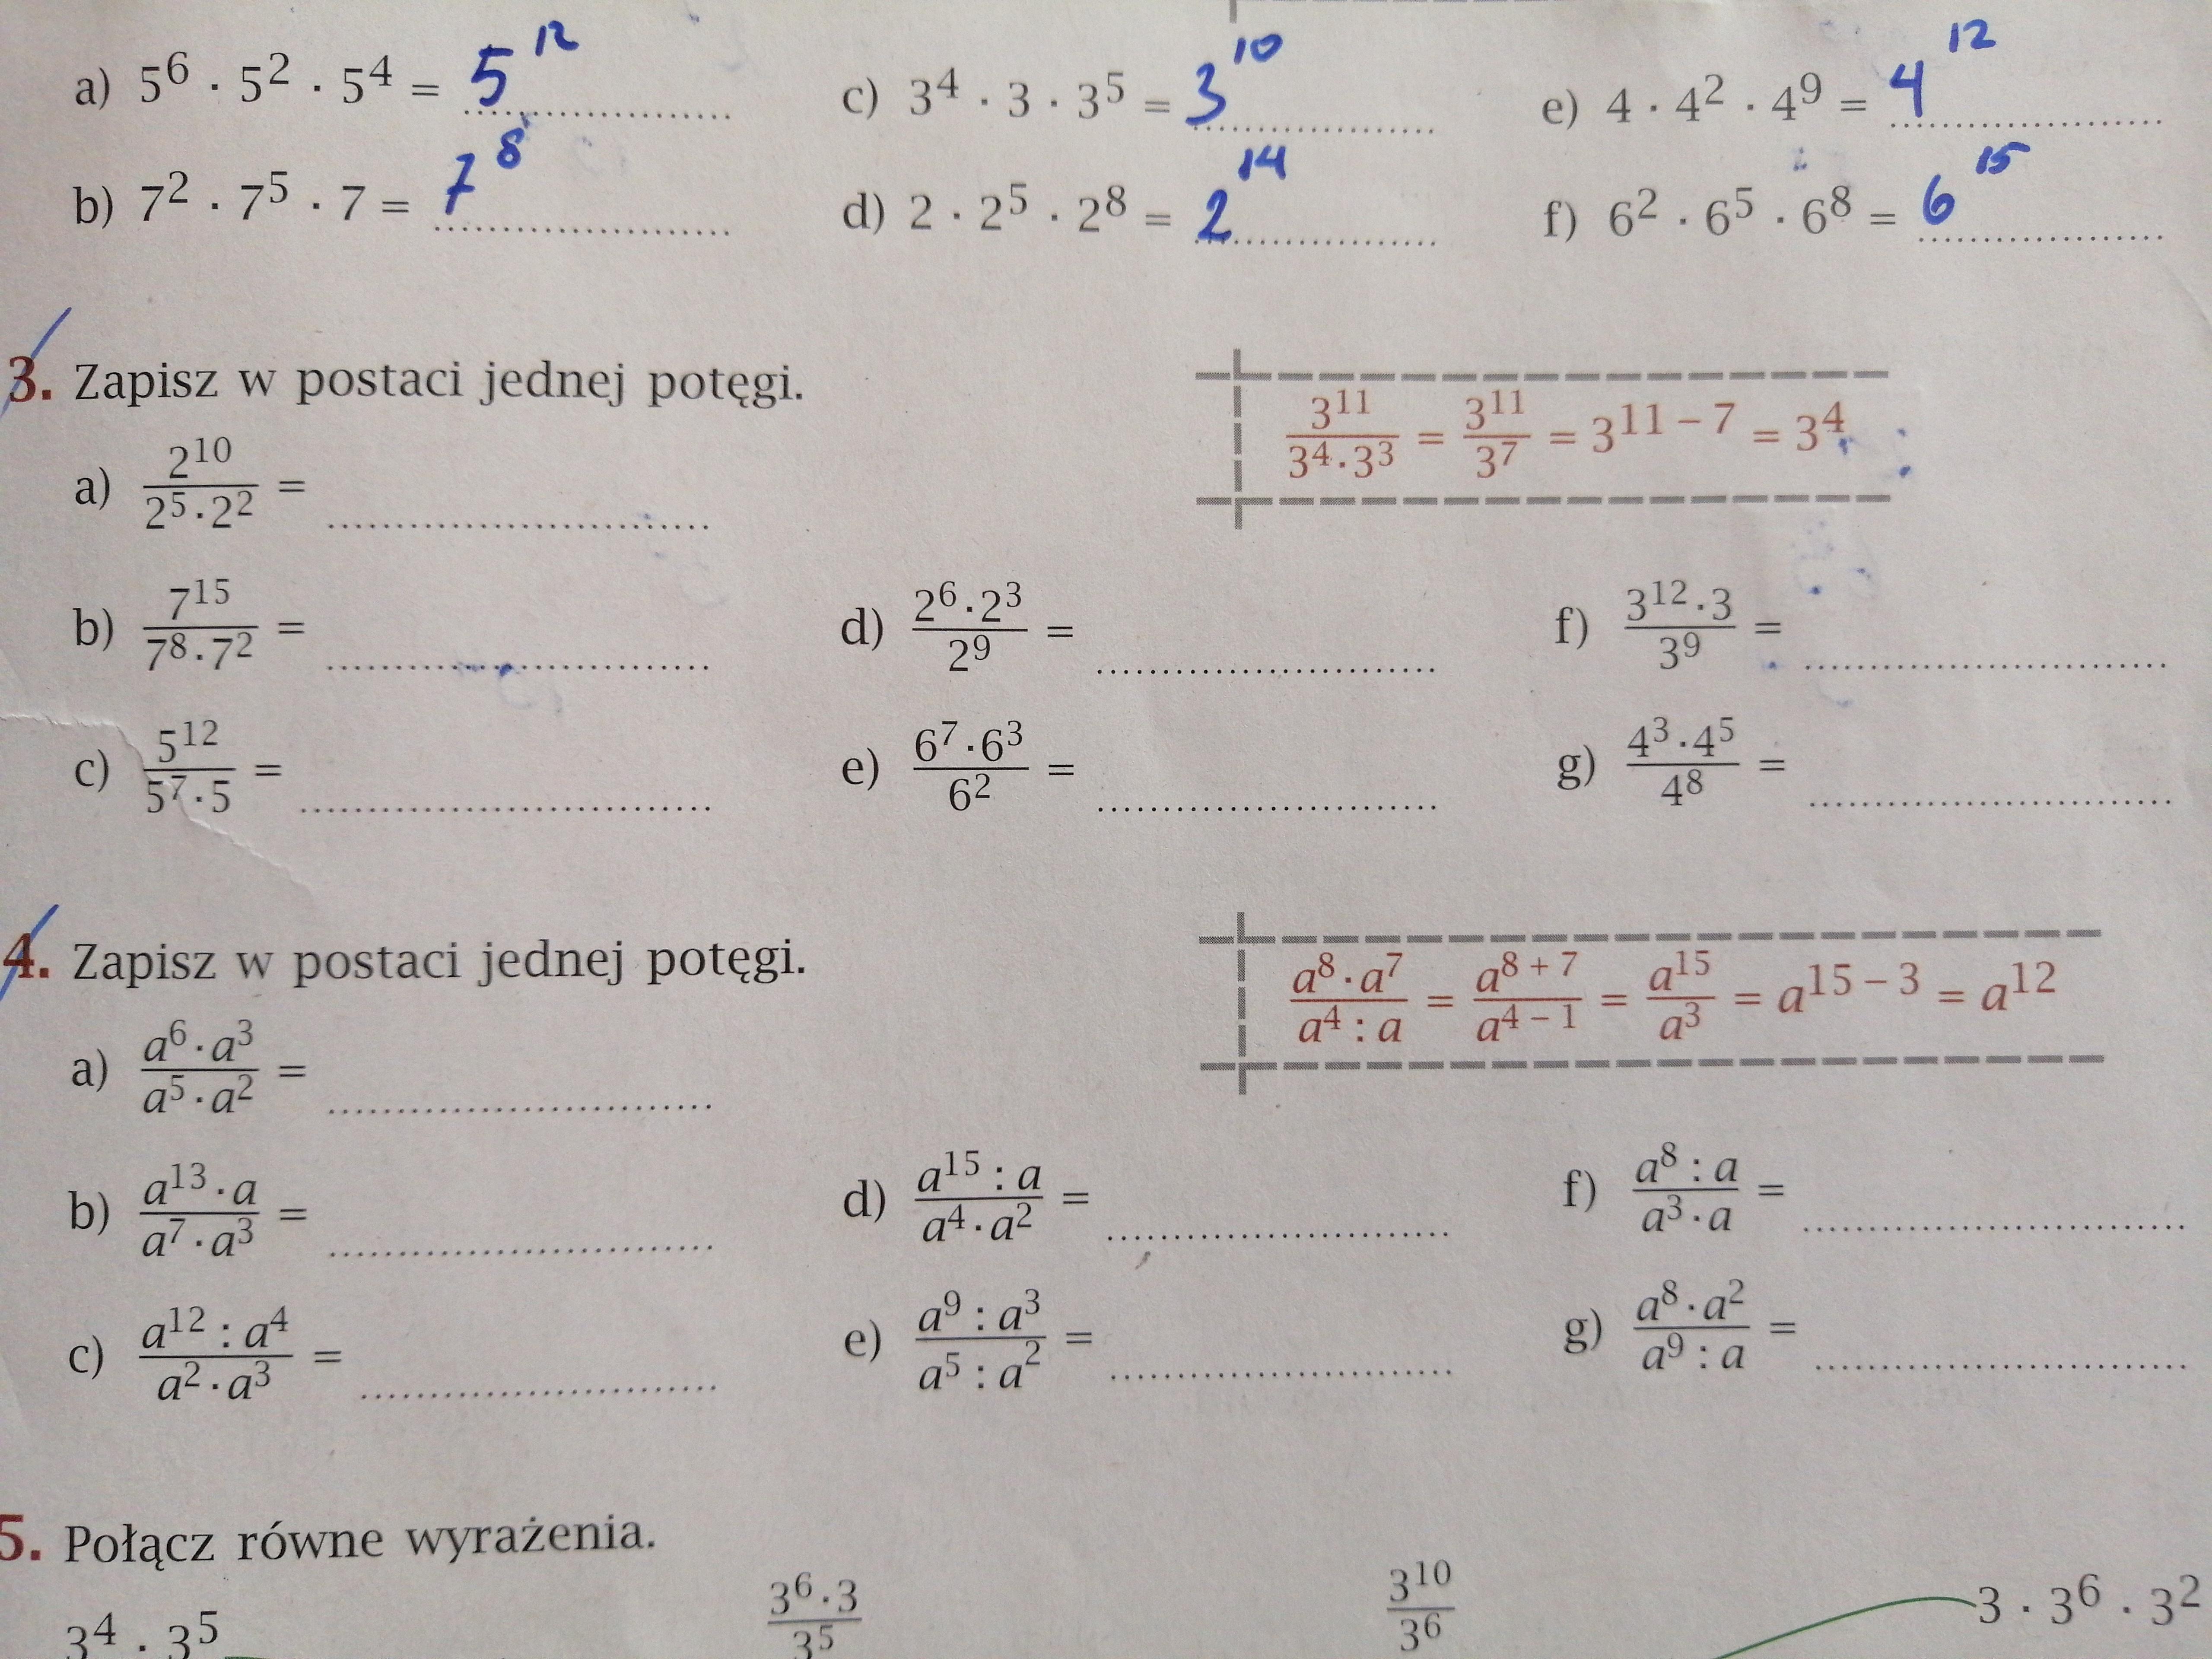 a) 5⁶ · 5² · 5⁴ = 5¹²
c) 3⁴ · 3 · 3⁵ = 3¹⁰
e) 4 · 4² · 4⁹ = 4¹²
b) 7² · 7⁵ · 7 = 7⁸
d) 2 · 2⁵ · 2⁸ = 2¹⁴
f) 6² · 6⁵ · 6⁸ = 6¹⁵
3. Zapisz w postaci jednej potęgi.
3¹¹/(3⁴·3³) = 3¹¹/3⁷ = 3¹¹⁻⁷ = 3⁴
a) 2¹⁰/(2⁵·2²) =
b) 7¹⁵/(7⁸·7²) =
d) (2⁶·2³)/2⁹ =
f) (3¹²·3)/3⁹ =
c) 5¹²/(5⁷·5) =
e) (6⁷·6³)/6² =
g) (4³·4⁵)/4⁸ =
4. Zapisz w postaci jednej potęgi.
(a⁸·a⁷)/(a⁴ : a) = a⁸⁺⁷/a⁴⁻¹ = a¹⁵/a³ = a¹⁵⁻³ = a¹²
a) (a⁶·a³)/(a⁵·a²) =
b) (a¹³·a)/(a⁷·a³) =
d) (a¹⁵ : a)/(a⁴·a²) =
f) (a⁸ : a)/(a³·a) =
c) (a¹² : a⁴)/(a²·a³) =
e) (a⁹ : a³)/(a⁵ : a²) =
g) (a⁸·a²)/(a⁹ : a) =
5. Połącz równe wyrażenia.
3⁴ · 3⁵
(3⁶·3)/3⁵
3¹⁰/3⁶
3 · 3⁶ · 3²